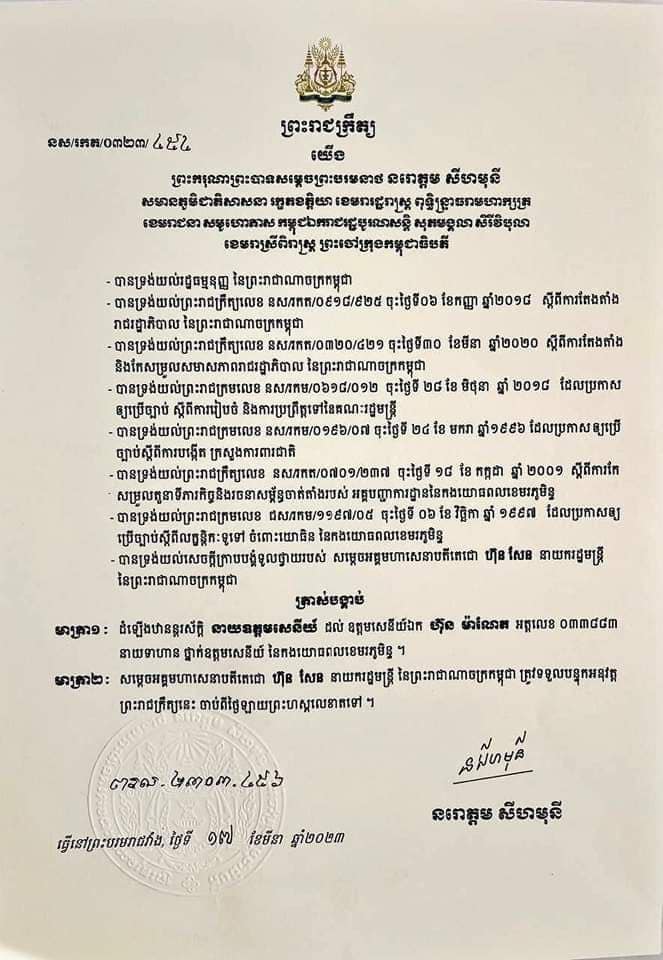 ព្រះរាជក្រឹត្យ
នស/រកត/០៣២៣/៤៥៤
យើង
ព្រះករុណាព្រះបាទសម្តេចព្រះបរមនាថ នរោត្តម សីហមុនី
សមានភូមិជាតិសាសនា រក្ខតខត្តិយា ខេមរារដ្ឋរាស្ត្រ ពុទ្ធិន្ទ្រាធរាមហាក្សត្រ
ខេមរាជនា សមូហោភាស កម្ពុជឯករាជរដ្ឋបូរណសន្តិ សុភមង្គលា សិរីវិបុលា
ខេមរាស្រីពិរាស្ត្រ ព្រះចៅក្រុងកម្ពុជាធិបតី
- បានទ្រង់យល់រដ្ឋធម្មនុញ្ញ នៃព្រះរាជាណាចក្រកម្ពុជា
- បានទ្រង់យល់ព្រះរាជក្រឹត្យលេខ នស/រកត/០៩១៨/៩២៥ ចុះថ្ងៃទី០៦ ខែកញ្ញា ឆ្នាំ២០១៨ ស្តីពីការតែងតាំង
រាជរដ្ឋាភិបាល នៃព្រះរាជាណាចក្រកម្ពុជា
- បានទ្រង់យល់ព្រះរាជក្រឹត្យលេខ នស/រកត/០៣២០/៤២១ ចុះថ្ងៃទី៣០ ខែមីនា ឆ្នាំ២០២០ ស្តីពីការតែងតាំង
និងកែសម្រួលសមាសភាពរាជរដ្ឋាភិបាល នៃព្រះរាជាណាចក្រកម្ពុជា
- បានទ្រង់យល់ព្រះរាជក្រមលេខ នស/រកម/០៦១៨/០១២ ចុះថ្ងៃទី ២៨ ខែ មិថុនា ឆ្នាំ ២០១៨ ដែលប្រកាស
ឲ្យប្រើច្បាប់ ស្តីពីការរៀបចំ និងការប្រព្រឹត្តទៅនៃគណៈរដ្ឋមន្ត្រី
- បានទ្រង់យល់ព្រះរាជក្រមលេខ នស/រកម/០១៩៦/០៧ ចុះថ្ងៃទី ២៤ ខែ មករា ឆ្នាំ១៩៩៦ ដែលប្រកាសឲ្យប្រើ
ច្បាប់ស្តីពីការបង្កើត ក្រសួងការពារជាតិ
- បានទ្រង់យល់ព្រះរាជក្រឹត្យលេខ នស/រកត/០៧០១/២៣៧ ចុះថ្ងៃទី ១៨ ខែ កក្កដា ឆ្នាំ ២០០១ ស្តីពីការកែ
សម្រួលតួនាទីភារកិច្ចនិងរចនាសម្ព័ន្ធចាត់តាំងរបស់ អគ្គបញ្ជាការដ្ឋាននៃកងយោធពលខេមរភូមិន្ទ
- បានទ្រង់យល់ព្រះរាជក្រមលេខ ជស/រកម/១១៩៧/០៥ ចុះថ្ងៃទី ០៦ ខែ វិច្ឆិកា ឆ្នាំ ១៩៩៧ ដែលប្រកាសឲ្យ
ប្រើច្បាប់ស្តីពីលក្ខន្តិកៈទូទៅ ចំពោះយោធិន នៃកងយោធពលខេមរភូមិន្ទ
- បានទ្រង់យល់សេចក្តីក្រាបបង្គំទូលថ្វាយរបស់ សម្តេចអគ្គមហាសេនាបតីតេជោ ហ៊ុន សែន នាយករដ្ឋមន្ត្រី
នៃព្រះរាជាណាចក្រកម្ពុជា
ត្រាស់បង្គាប់
មាត្រា១: ដំឡើងឋានន្តរស័ក្តិ នាយឧត្តមសេនីយ៍ ដល់ ឧត្តមសេនីយ៍ឯក ហ៊ុន ម៉ាណែត អត្តលេខ ០៣៣៨៨៣
នាយទាហាន ថ្នាក់ឧត្តមសេនីយ៍ នៃកងយោធពលខេមរភូមិន្ទ ។
មាត្រា២: សម្តេចអគ្គមហាសេនាបតីតេជោ ហ៊ុន សែន នាយករដ្ឋមន្ត្រី នៃព្រះរាជាណាចក្រកម្ពុជា ត្រូវទទួលបន្ទុកអនុវត្ត
ព្រះរាជក្រឹត្យនេះ ចាប់ពីថ្ងៃឡាយព្រះហស្តលេខាតទៅ ។
ពរល.២៣០៣.៤៥៦
នរោត្តម សីហមុនី
ធ្វើនៅព្រះបរមរាជវាំង, ថ្ងៃទី ១៧ ខែមីនា ឆ្នាំ២០២៣